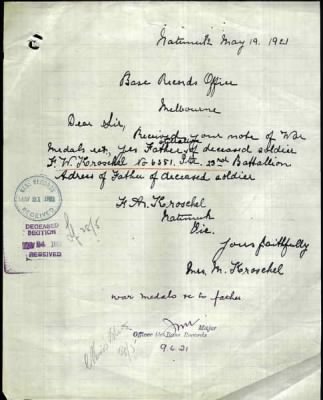 Natimuk May 19. 1921
Base Records Office
Melbourne
Dear Sir,
Received your note of War
relating
Medals ect, yes Father of deceased soldier
F. W. Kroschel No 6351. Pte. 23rd Battallion
Adress of Father of deceased soldier
H. A. Kroschel
Natimuk
Vic.
Yours faithfully
Mrs. M. Kroschel
BASE RECORDS
RECEIVED
DECEASED
SECTION
MAY 24
RECEIVED
25/5
war medals re to father
Major
Officer i/c Base Records
9.6.21